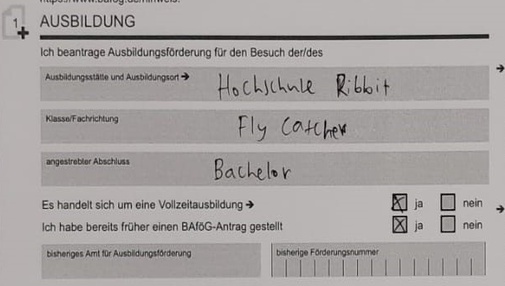 1 AUSBILDUNG
Ich beantrage Ausbildungsförderung für den Besuch der/des
Ausbildungsstätte und Ausbildungsort → Hochschule Ribbit
Klasse/Fachrichtung Fly Catcher
angestrebter Abschluss Bachelor
Es handelt sich um eine Vollzeitausbildung → ja nein
Ich habe bereits früher einen BAföG-Antrag gestellt ja nein
bisheriges Amt für Ausbildungsförderung bisherige Förderungsnummer